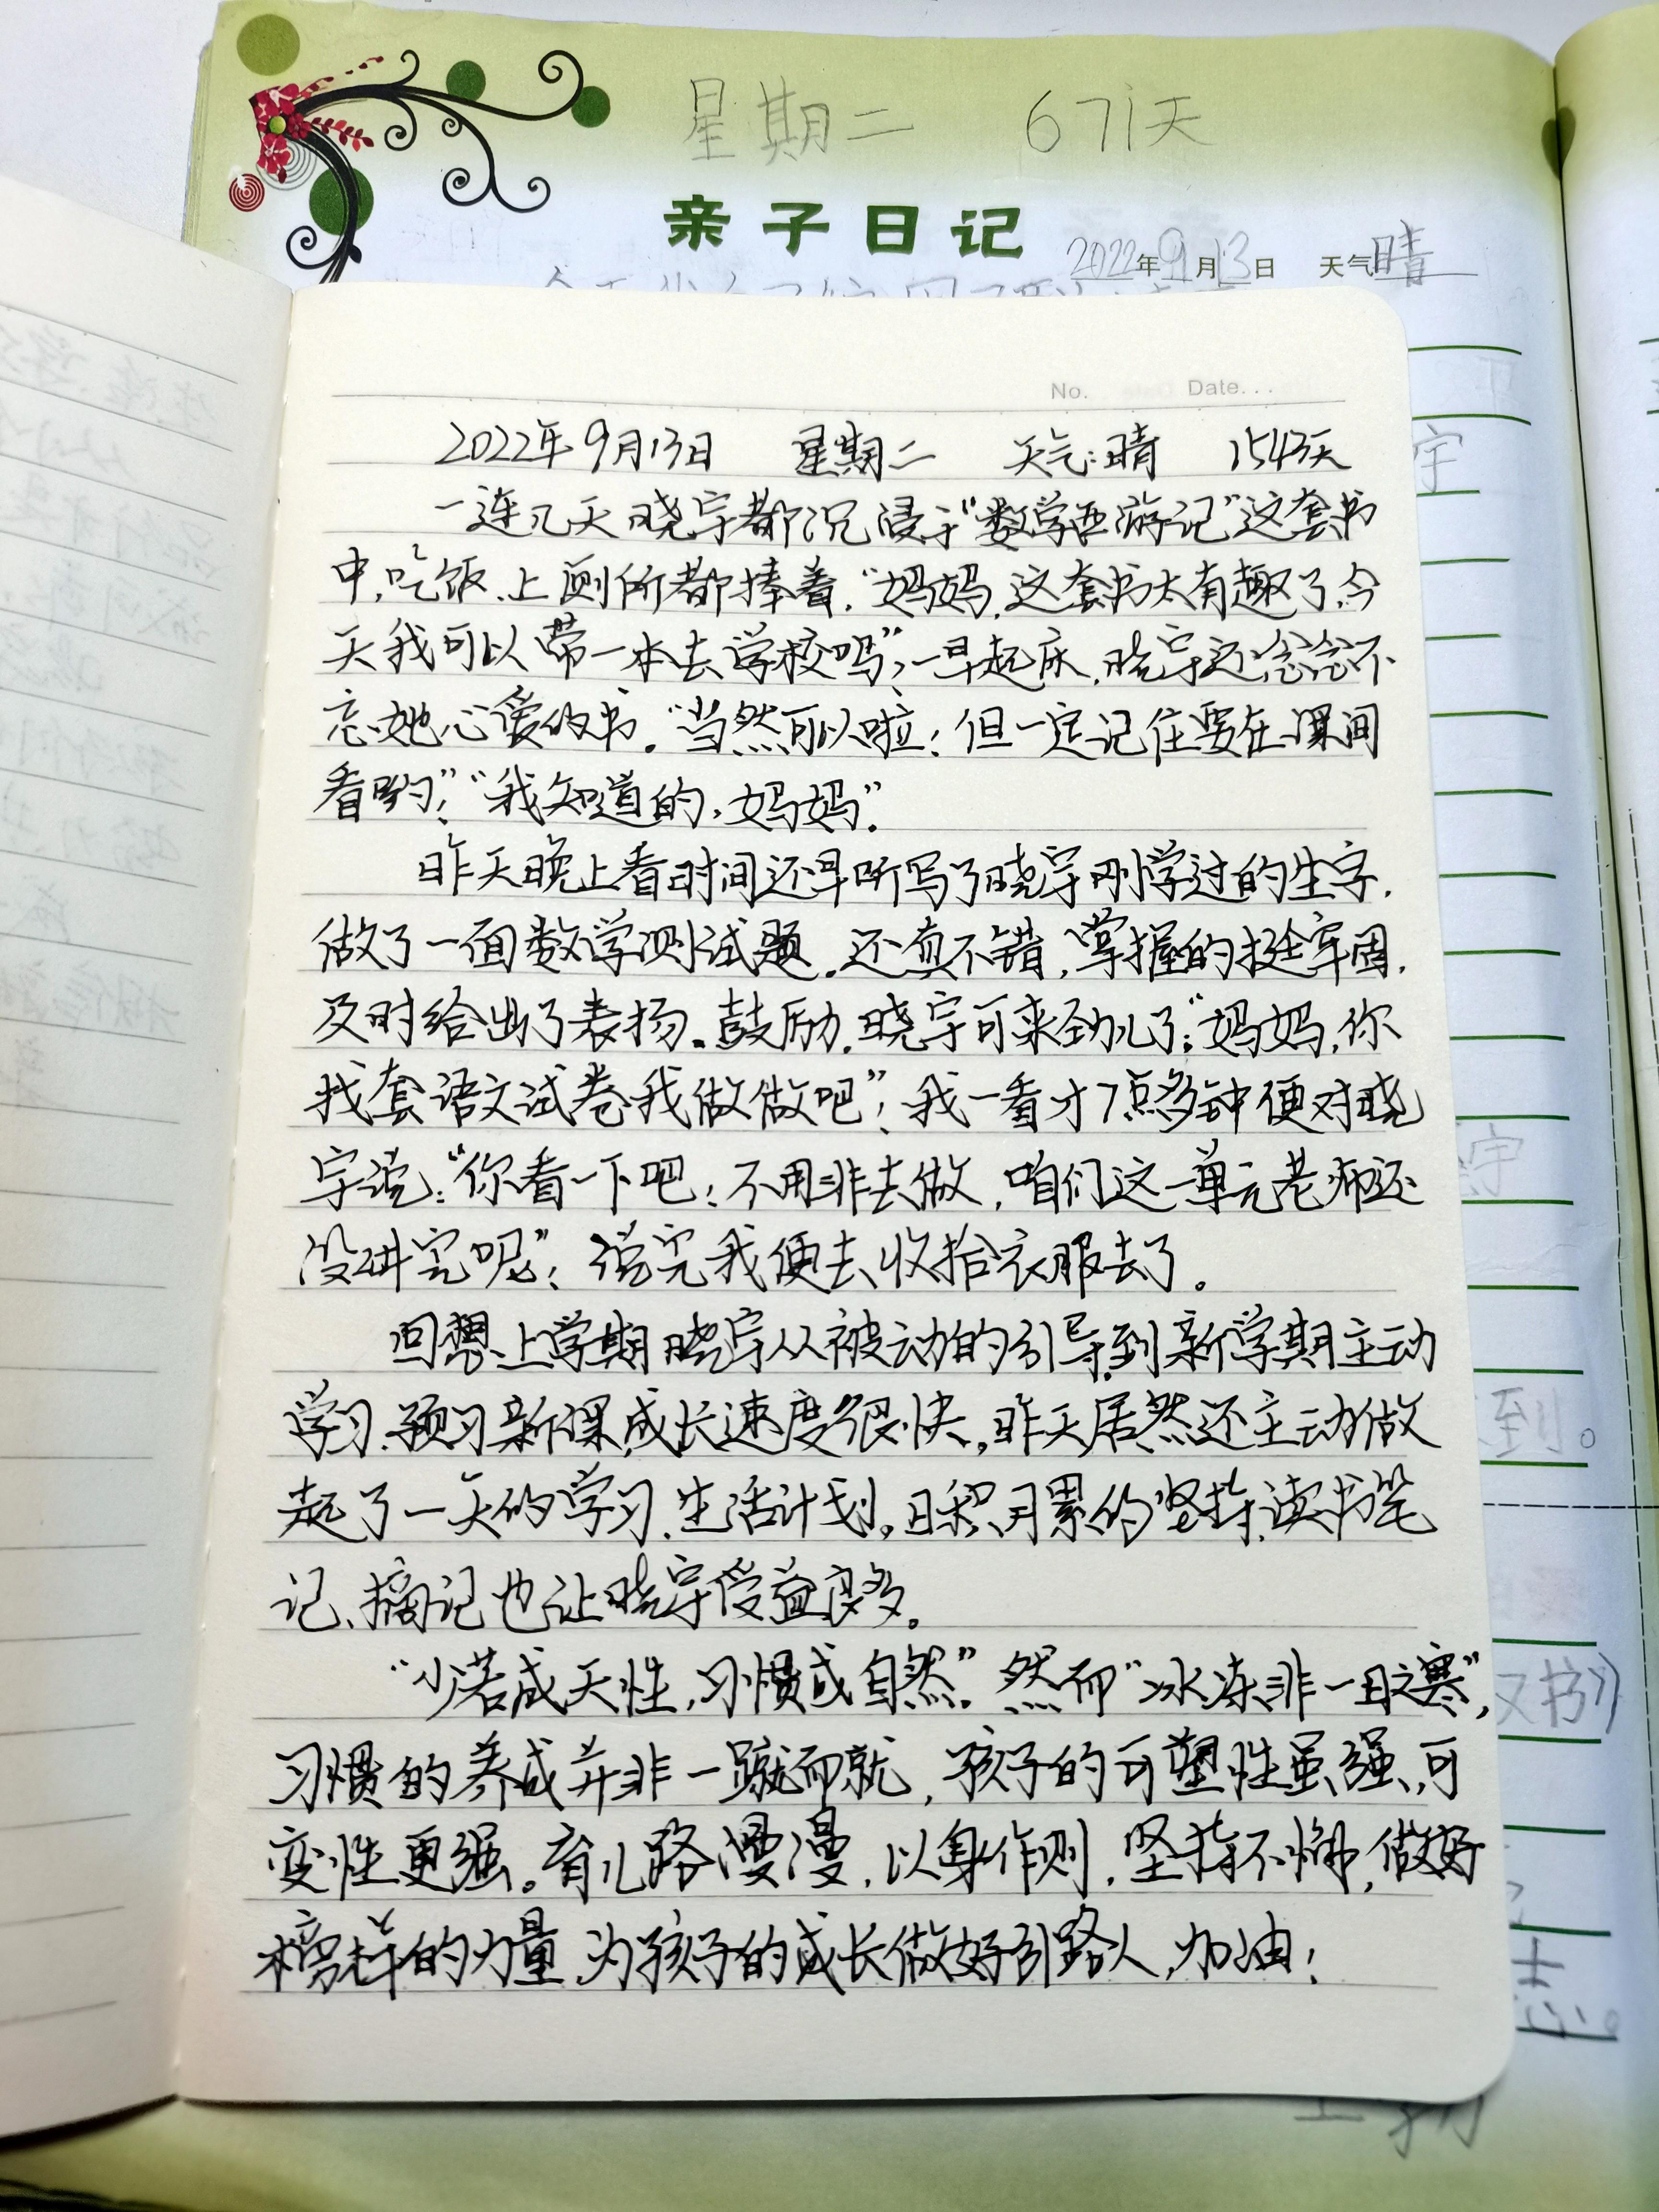 星期二 671天
亲子日记
2022年9月13日 天气晴
No. Date...
2022年9月13日 星期二 天气:晴 1543天
一连几天晓宇都沉浸于“数学西游记”这套书
中,吃饭、上厕所都捧着,“妈妈,这套书太有趣了,今
天我可以带一本去学校吗”,一早起床,晓宇还念念不
忘她心爱的书。“当然可以啦!但一定记住要在课间
看哟!”“我知道的,妈妈”。
昨天晚上看时间还早听写了晓宇刚学过的生字,
做了一面数学测试题。还真不错,掌握的挺牢固,
及时给出了表扬。鼓励,晓宇可来劲儿了:“妈妈,你
找套语文试卷我做做吧”!我一看才7点多钟便对晓
宇说:“你看一下吧!不用非去做,咱们这一单元老师还
没讲完呢”!说完我便去收拾衣服去了。
回想上学期晓宇从被动的引导到新学期主动
学习、预习新课,成长速度很快,昨天居然还主动做
起了一天的学习、生活计划。日积月累的坚持读书笔
记、摘记也让晓宇受益良多。
“少若成天性,习惯成自然”。然而“冰冻非一日之寒”,
习惯的养成并非一蹴而就,孩子的可塑性虽强,可
变性更强。育儿路漫漫,以身作则,坚持不懈,做好
榜样的力量,为孩子的成长做好引路人,加油!
宇
宇
到。
书》